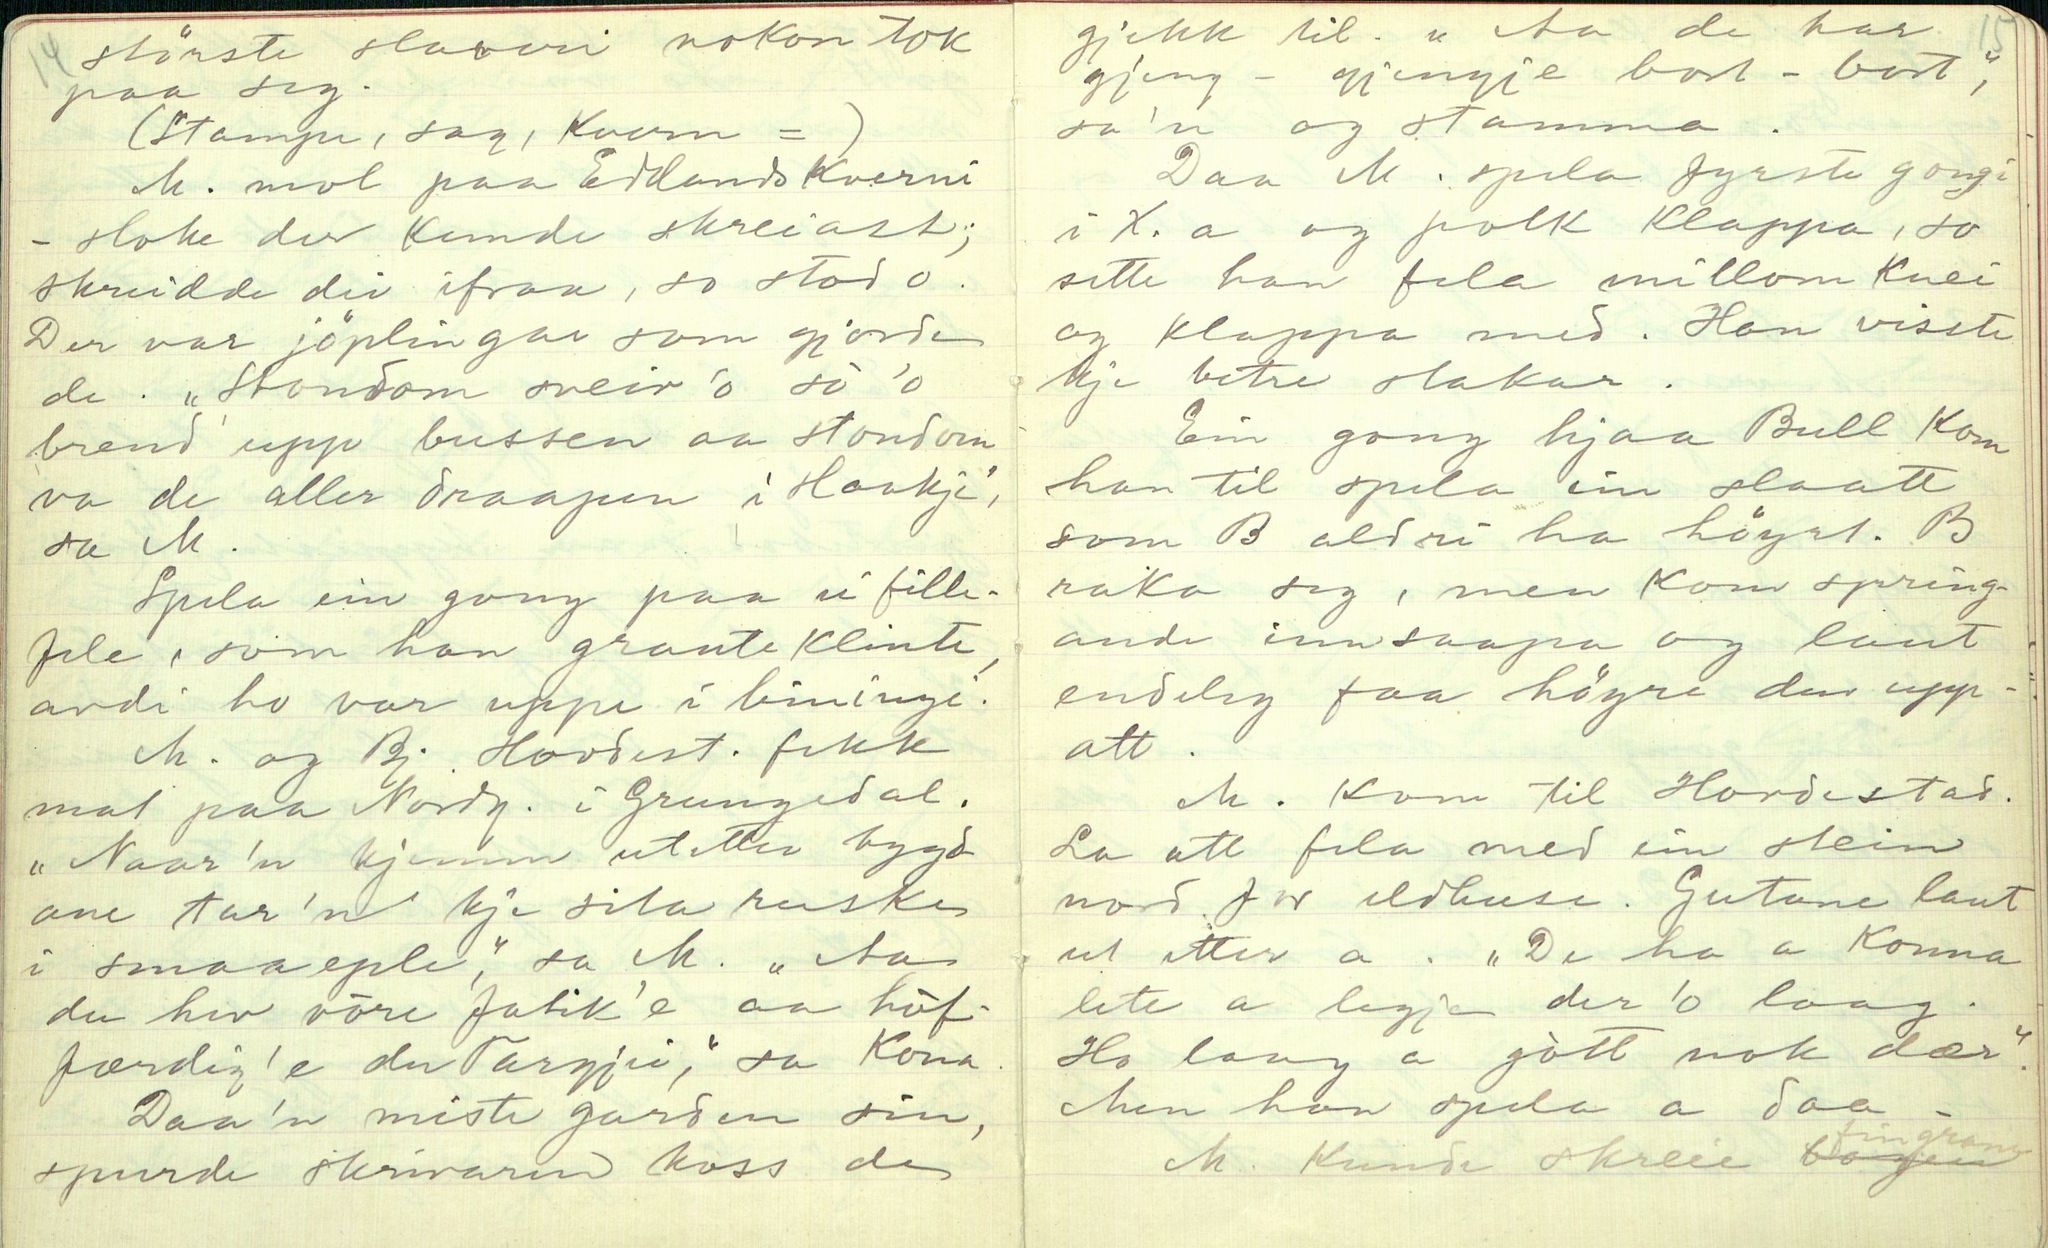 14
störste slaveri nokon tok
paa seg.
(Stampe, sag, Kvern = )
M. mol paa Edlands Kverni
- sloke der Kunde skreiast;
skreidde dei ifraa, so stod o.
Der var jöplingar som gjorde
de. „Stondom sveiv 'o so 'o
brend' upp bussen aa stondom
va de aller draapen i Haakje",
sa M.
Spela ein gong paa ei fille-
fele, som han graute Klinte,
avdi ho var uppe i liminge.
M. og Bj. Hovdest. fekk
mat paa Nordg. i Grungedal.
„Naar'n kjemm utette bygd
ane tar'n kje sita ruske
i smaaeple", sa M. „Aa
du hev vöre fatik'e aa höf-
færdig'e du Targjei," sa Kona.
Daa'n miste garden sin,
spurde skrivaren koss de
15
gjekk til. „Aa de har
gjeng - gjengje bort - bort",
sa'n og stamma.
Daa M. spela fyrste gongi
i X.a og folk Klappa, so
sette han fela millom Knei
og Klappa med. Han visste
kje betre stakar.
Ein gong hjaa Bull Kom
han til spela ein slaatt
som B aldri ha höyrt. B
raka seg, men Kom spring-
ande innsaapa og laut
endeleg faa höyre den upp-
att.
M. Kom til Hovdestad.
La att fela med ein stein
nord for eldhuse. Gutane laut
ut etter a. „De ha a Konna
lete a legje der 'o laag.
Ho laag a gòtt nok dær".
Men han spela a daa -
M. Kunde skreie bogen fingrane